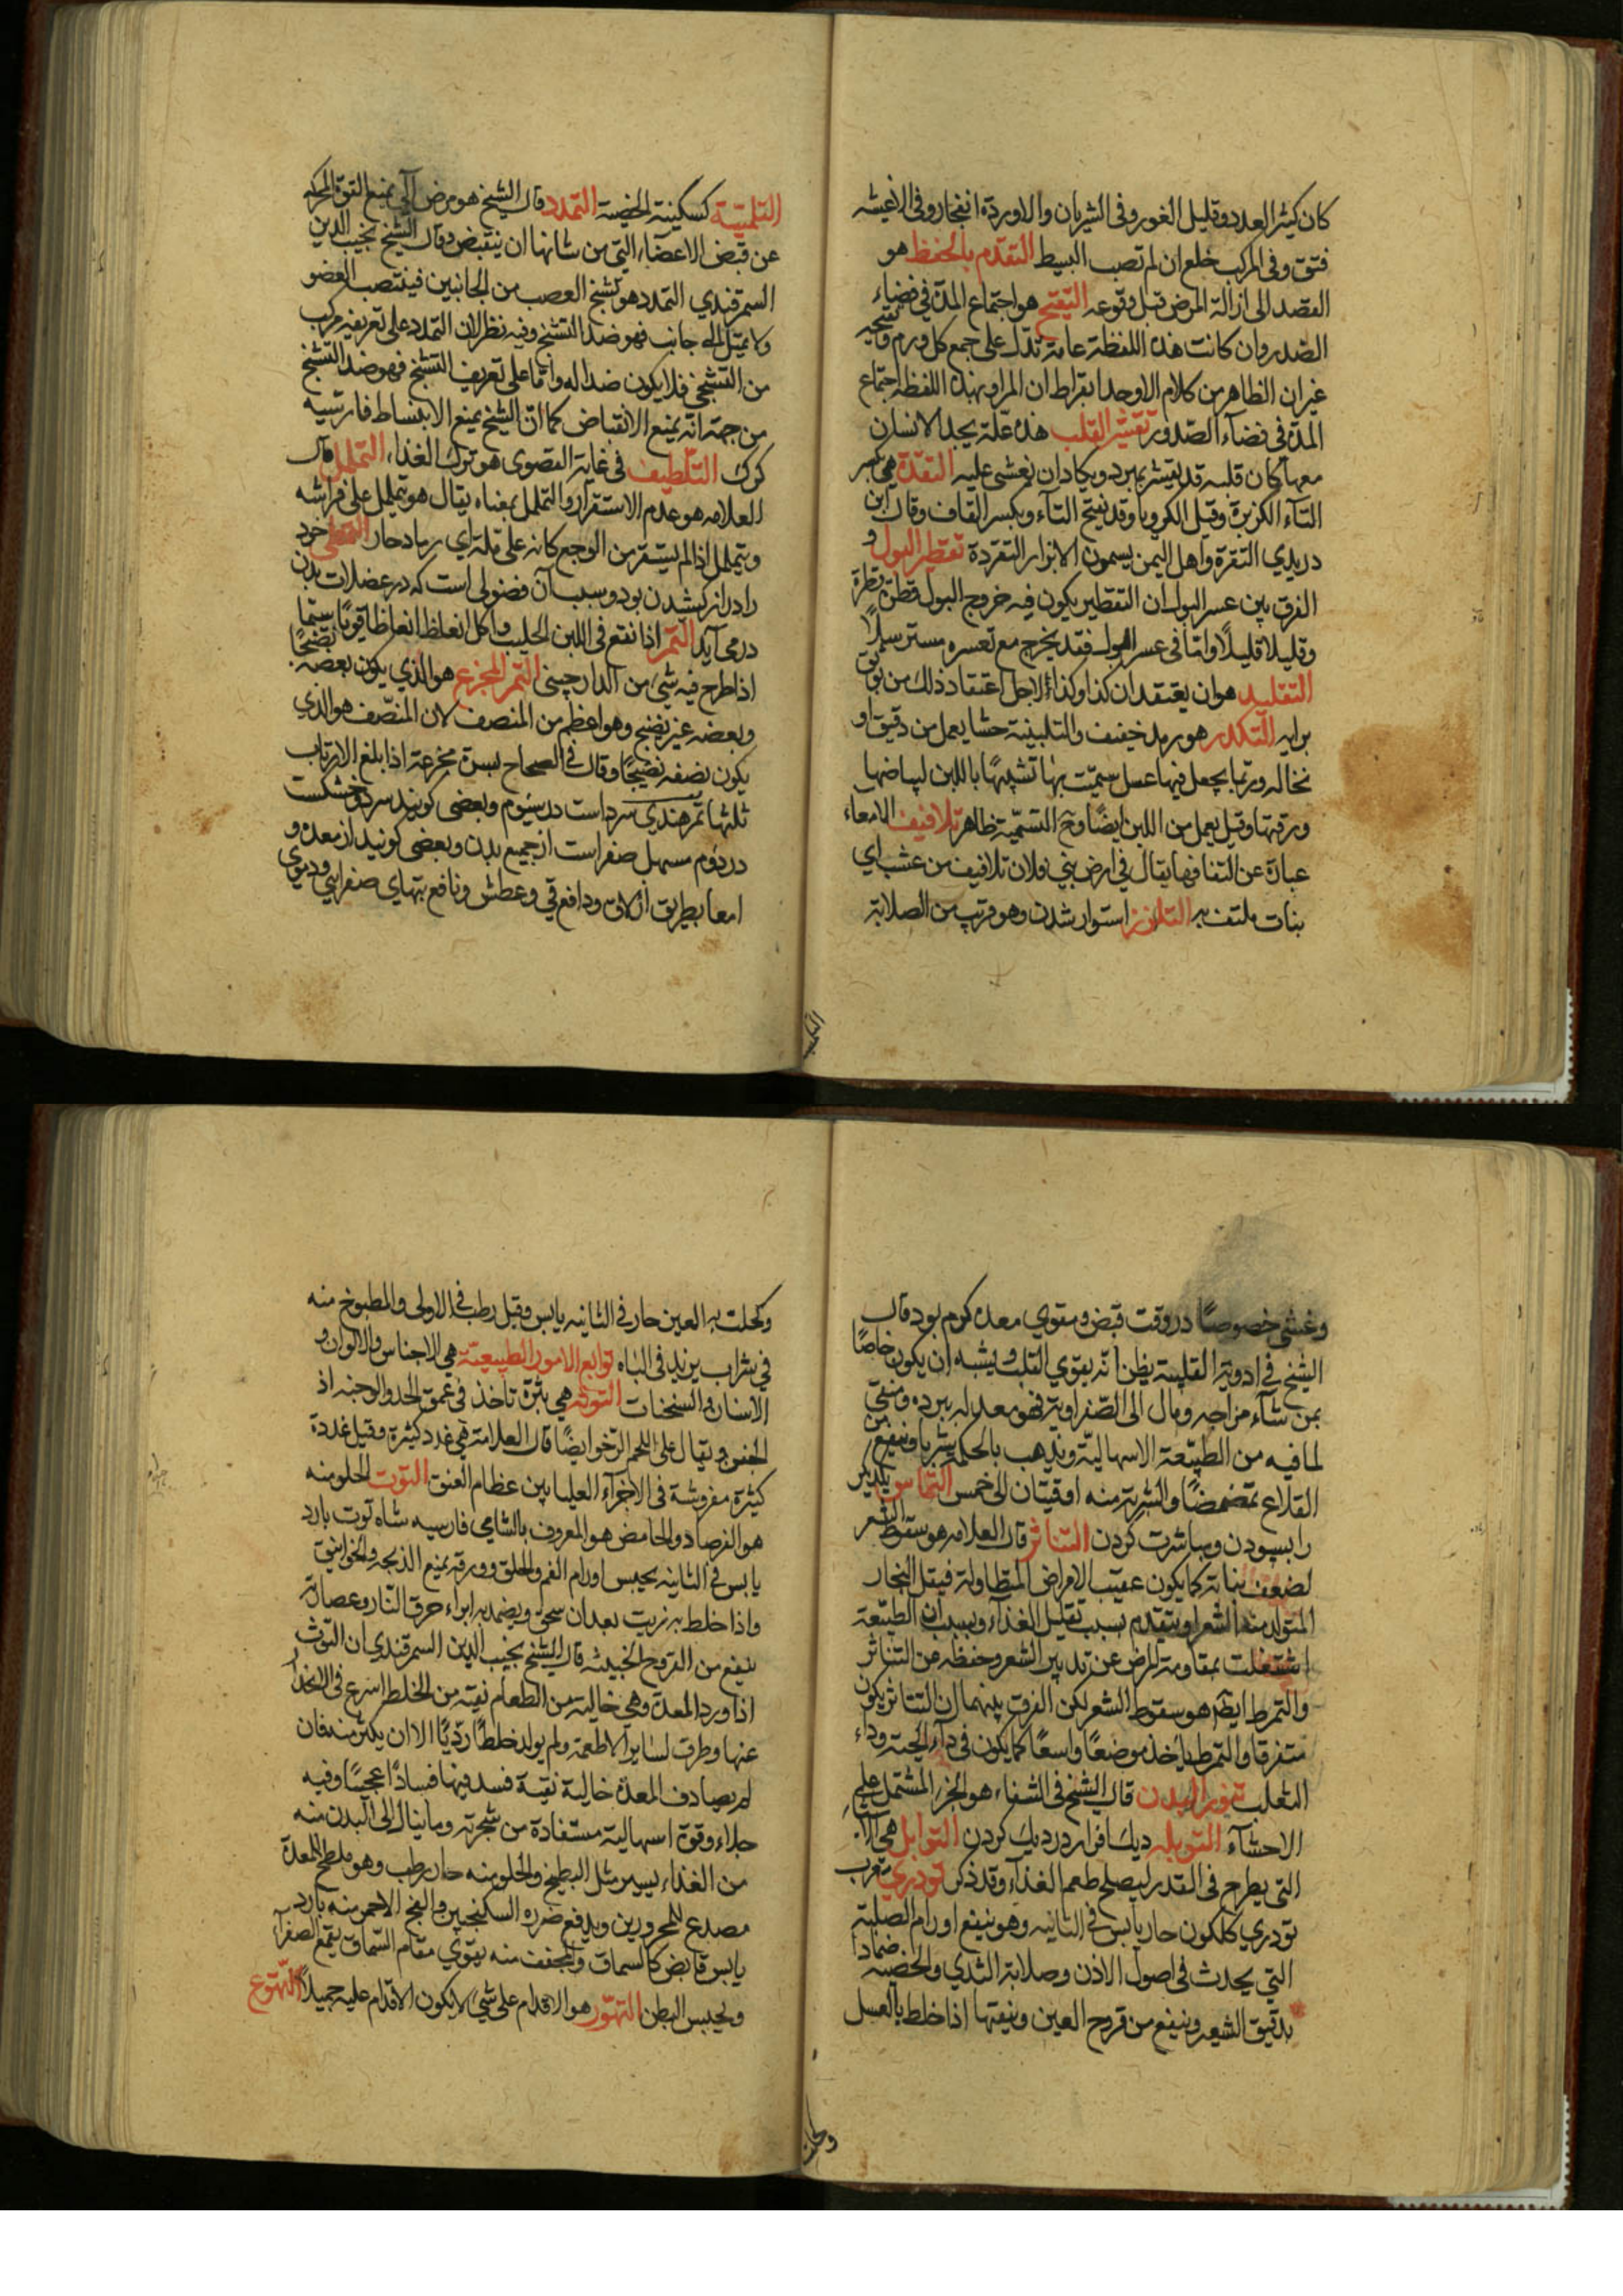 كان كثير العدد وقليل الغور وفى الشريان والاوردة انفجار وفى الاغشيه
فتق وفى المركب خلع ان لم تصب البسيط التقدم بالحفظ هو
القصد الى ازالة المرض قبل وقوعه التقيح هو اجتماع المدة في فضاء
الصدر وان كانت هذه اللفظة عامة تدل على جمع كل ورم وتقيحه
غير ان الظاهر من كلام الاوحد ابقراط ان المراد بهذه اللفظه اجتماع
المدة فى فضآء الصدور تقشر القلب هذه علة يجد الانسان
معها كان قلبه قد يقشر بمبرد ويكاد ان يغشى عليه التقدة هي بكسر
التآء الكزبرة وقيل الكرويا وقد يفتح التآء وبكسر القاف وقال ابن
دريدي التقرة واهل اليمن يسمون الابزار التقردة تقطر البول و
الفرق بين عسر البول ان التقطير يكون فيه خروج البول قطرة قطرة
وقليلا قليلاً واما فى عسر البول فقد يخرج مع تعسره مسترسلاً
التقليد هو ان يعتقد ان كذا وكذا لاجل اعتقاد ذلك من يوثق
برايه التكدر هو رمد خفيف والتلبينة حشا يعمل من دقيق او
نخاله وربما يجعل فيها عسل سميت بها تشبيهًا باللبن لبياضها
ورقتها وقيل يعمل من اللبن ايضًا وح التسمية ظاهر تلافيف الامعاء
عبارة عن التفافها يقال في ارض بني فلان تلافيف من عشب اي
نبات ملتف به التلزز استوار شدن وهو قريب من الصلابة
التلميّة كسكينة الخصية التمدد قال الشيخ هو مرض آلى يمنع القوة المحركه
عن قبض الاعضاء التي من شانها ان ينقبض وقال الشيخ نجيب الدين
السمرقندي التمدد هو تشنج العصب من الجانبين فينتصب العضو
ولا يميل الى جانب فهو ضد التشنج وفيه نظر لان التمدد على تعريفه مركب
من التشنجين فلا يكون ضدا له واما على تعريف التشنج فهو ضد التشنج
من جهة انه يمنع الانقباض كما ان الشيخ يمنع الابنساط فارسيه
كزك التلطيف فى غاية القصوى هو ترك الغذاء التململ قال
العلامه هو عدم الاستقرار والتململ بمعناه يقال هو يتململ على فراشه
ويتململ اذا لم يستقر من الوجع كانه على ملة اي رماد حار التمطى خود
را دراز كشدن بود وسبب آن فضولى است كه در عضلات بدن
درمى آيد التمر اذا نقع فى اللبن الحليب واكل انعظ انعاظا قويًا سيما
اذا طرح فيه شئ من الدارچينى التمر المجزع هو الذي يكون بعضه نضيجًا
وبعضه غير نضيج وهو اعظم من المنصف لان المنصّف هو الذي
يكون نصفه نضيجًا وقال فى الصحاح بسرة مجزعة اذا بلغ الارتاب
ثلثها تمر هندي سرد است در سيوم وبعضى كويند سرد وخشكست
در دوم مسهل صفر است از جميع بدن وبعضى كويند از معده و
امعا بطريق ازلاق ودافع قي وعطش ونافع تبهاى صفرابى ودموى
التكيب
وغشى خصوصًا در وقت قبض ومقوي معده كرم بود قال
الشيخ فى ادوية القلبية يظن انه يقوي القلب ويشبه ان يكون خاصًا
بمن ساء مزاجه ومال الى الصفراوية فهو معدل له ببرده ومنقي
لما فيه من الطبيعة الاسهالية ويذهب بالحكة شربا وينفع من
القلاع تمضمضًا والشربة منه اوقيتان الى خمس التماس يكديكر
را بسودن ومباشرت كردن التناثر قال العلامه هو سقوط الشعر
لضعف نباته كما يكون عقيب الامراض المتطاولة فيقل البخار
المتولد منه الشعر او ينقدم بسبب تقليل الغذآء وبسبب ان الطبيعة
اشتغلت بمقاومة المرض عن تدبير الشعر وحفظه عن التناثر
والتمرط ايضا هو سقوط الشعر لكن الفرق بينهما ان التناثر يكون
متفرقا والتمرط ياخذ موضعًا واسعًا كما يكون فى داء الحية وداء
الثعلب تنور البدن قال الشيخ فى الشفاء هو الجزء المشتمل على
الاحشآء التوبله ديك افزار در ديك كردن التوابل هي الاشياء
التي يطرح فى القدر ليصلح طعم الغذآء وقد ذكر تودري معرب
تودري كلكون حار يابس فى الثانيه وهو ينفع اورام الصلبة
التي يحدث فى اصول الاذن وصلابة الثدي والخصيه ضمادا
بدقيق الشعير وينفع من قروح العين وينقيها اذا خلط بالعسل
وكحلت
وكحلت به العين حار فى الثانيه يابس وقيل رطب فى الاولى والمطبوخ منه
في شراب يزيد فى الباه توابع الامور الطبيعيّة هي الاجناس والالوان و
الاسنان والسخنات التوثه هي بثرة تاخذ فى عمق الخد والوجنه اذ
الجفن ويقال على اللحم الرخو ايضًا قال العلامة هي غدد كثيرة وقيل غددة
كثيرة مفروشة فى الاجزآء العليا بين عظام العنق التوت الحلو منه
هو الفرصاد والحامض هو المعروف بالشامي فارسيه شاه توت بارد
يابس فى الثانيه يحبس اورام الفم والحلق وورقه يمنع الذبحه والخوانيق
واذا خلط به زيت بعد ان سحق ويضمد به ابراء حرق النار وعصارته
ينفع من القروح الخبيثه قال الشيخ نجيب الدين السمرقندي ان التوث
اذا ورد المعدة وهي خالية من الطعام نقيه من الخلط اسرع فى الانحدار
عنها وطرق لساير الاطعمة ولم يولد خلطًا رديًا الا ان يكثر منه فان
لم يصادف المعدة خالية نقية فسد فيها فسادًا عجيبًا وفيه
جلاء وقوة اسهالية مستفادة من شجرته وما ينال الى البدن منه
من الغذاء يسير مثل البطيخ والحلو منه حار رطب وهو ملطخ للمعدة
مصدع للمحرورين ويدفع ضرره السكنجبين والفج الاحمر منه بارد
يابس قابض كالسماق والمجفف منه يقوي مقام السماق يقمع الصفرآء
ويحبس البطن التهوّر هو الاقدام على شئ لا يكون الاقدام عليه جميلاً التهوّع